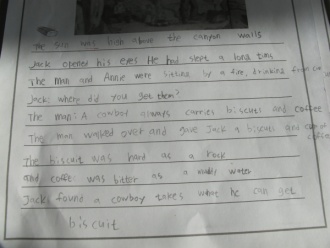 The sun was high above the canyon walls
Jack opened his eyes He had slept a long time
The man and Annie were sitting by a fire, drinking from
Jack: where did you get them?
The man: A cowboy always carries biscuits and coffee
The man walked over and gave Jack a biscuit and cup of coffee
The biscuit was hard as a rock
and coffe was bitter as a muddy water
Jack: found a cowboy takes what he can get
biscuit